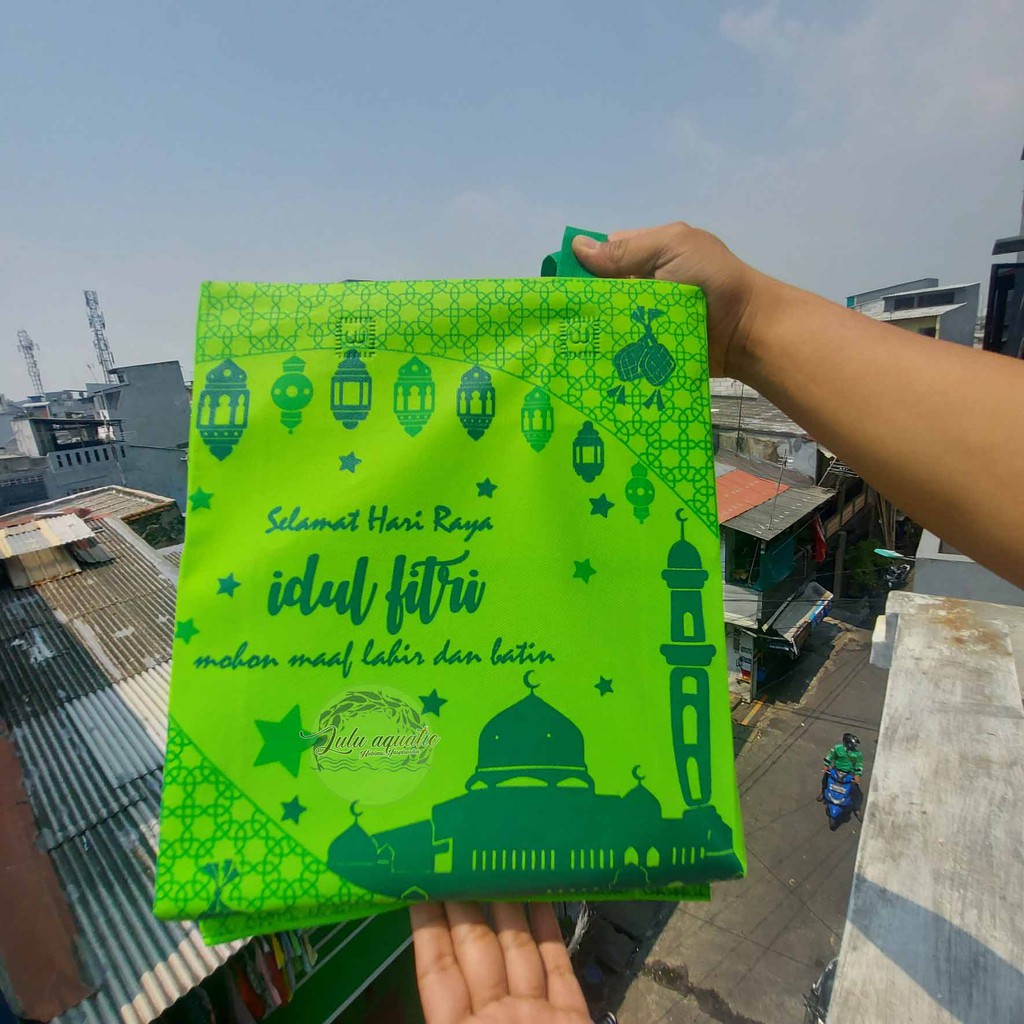 Selamat Hari Raya
idul fitri
mohon maaf lahir dan batin
Lulu aquatic